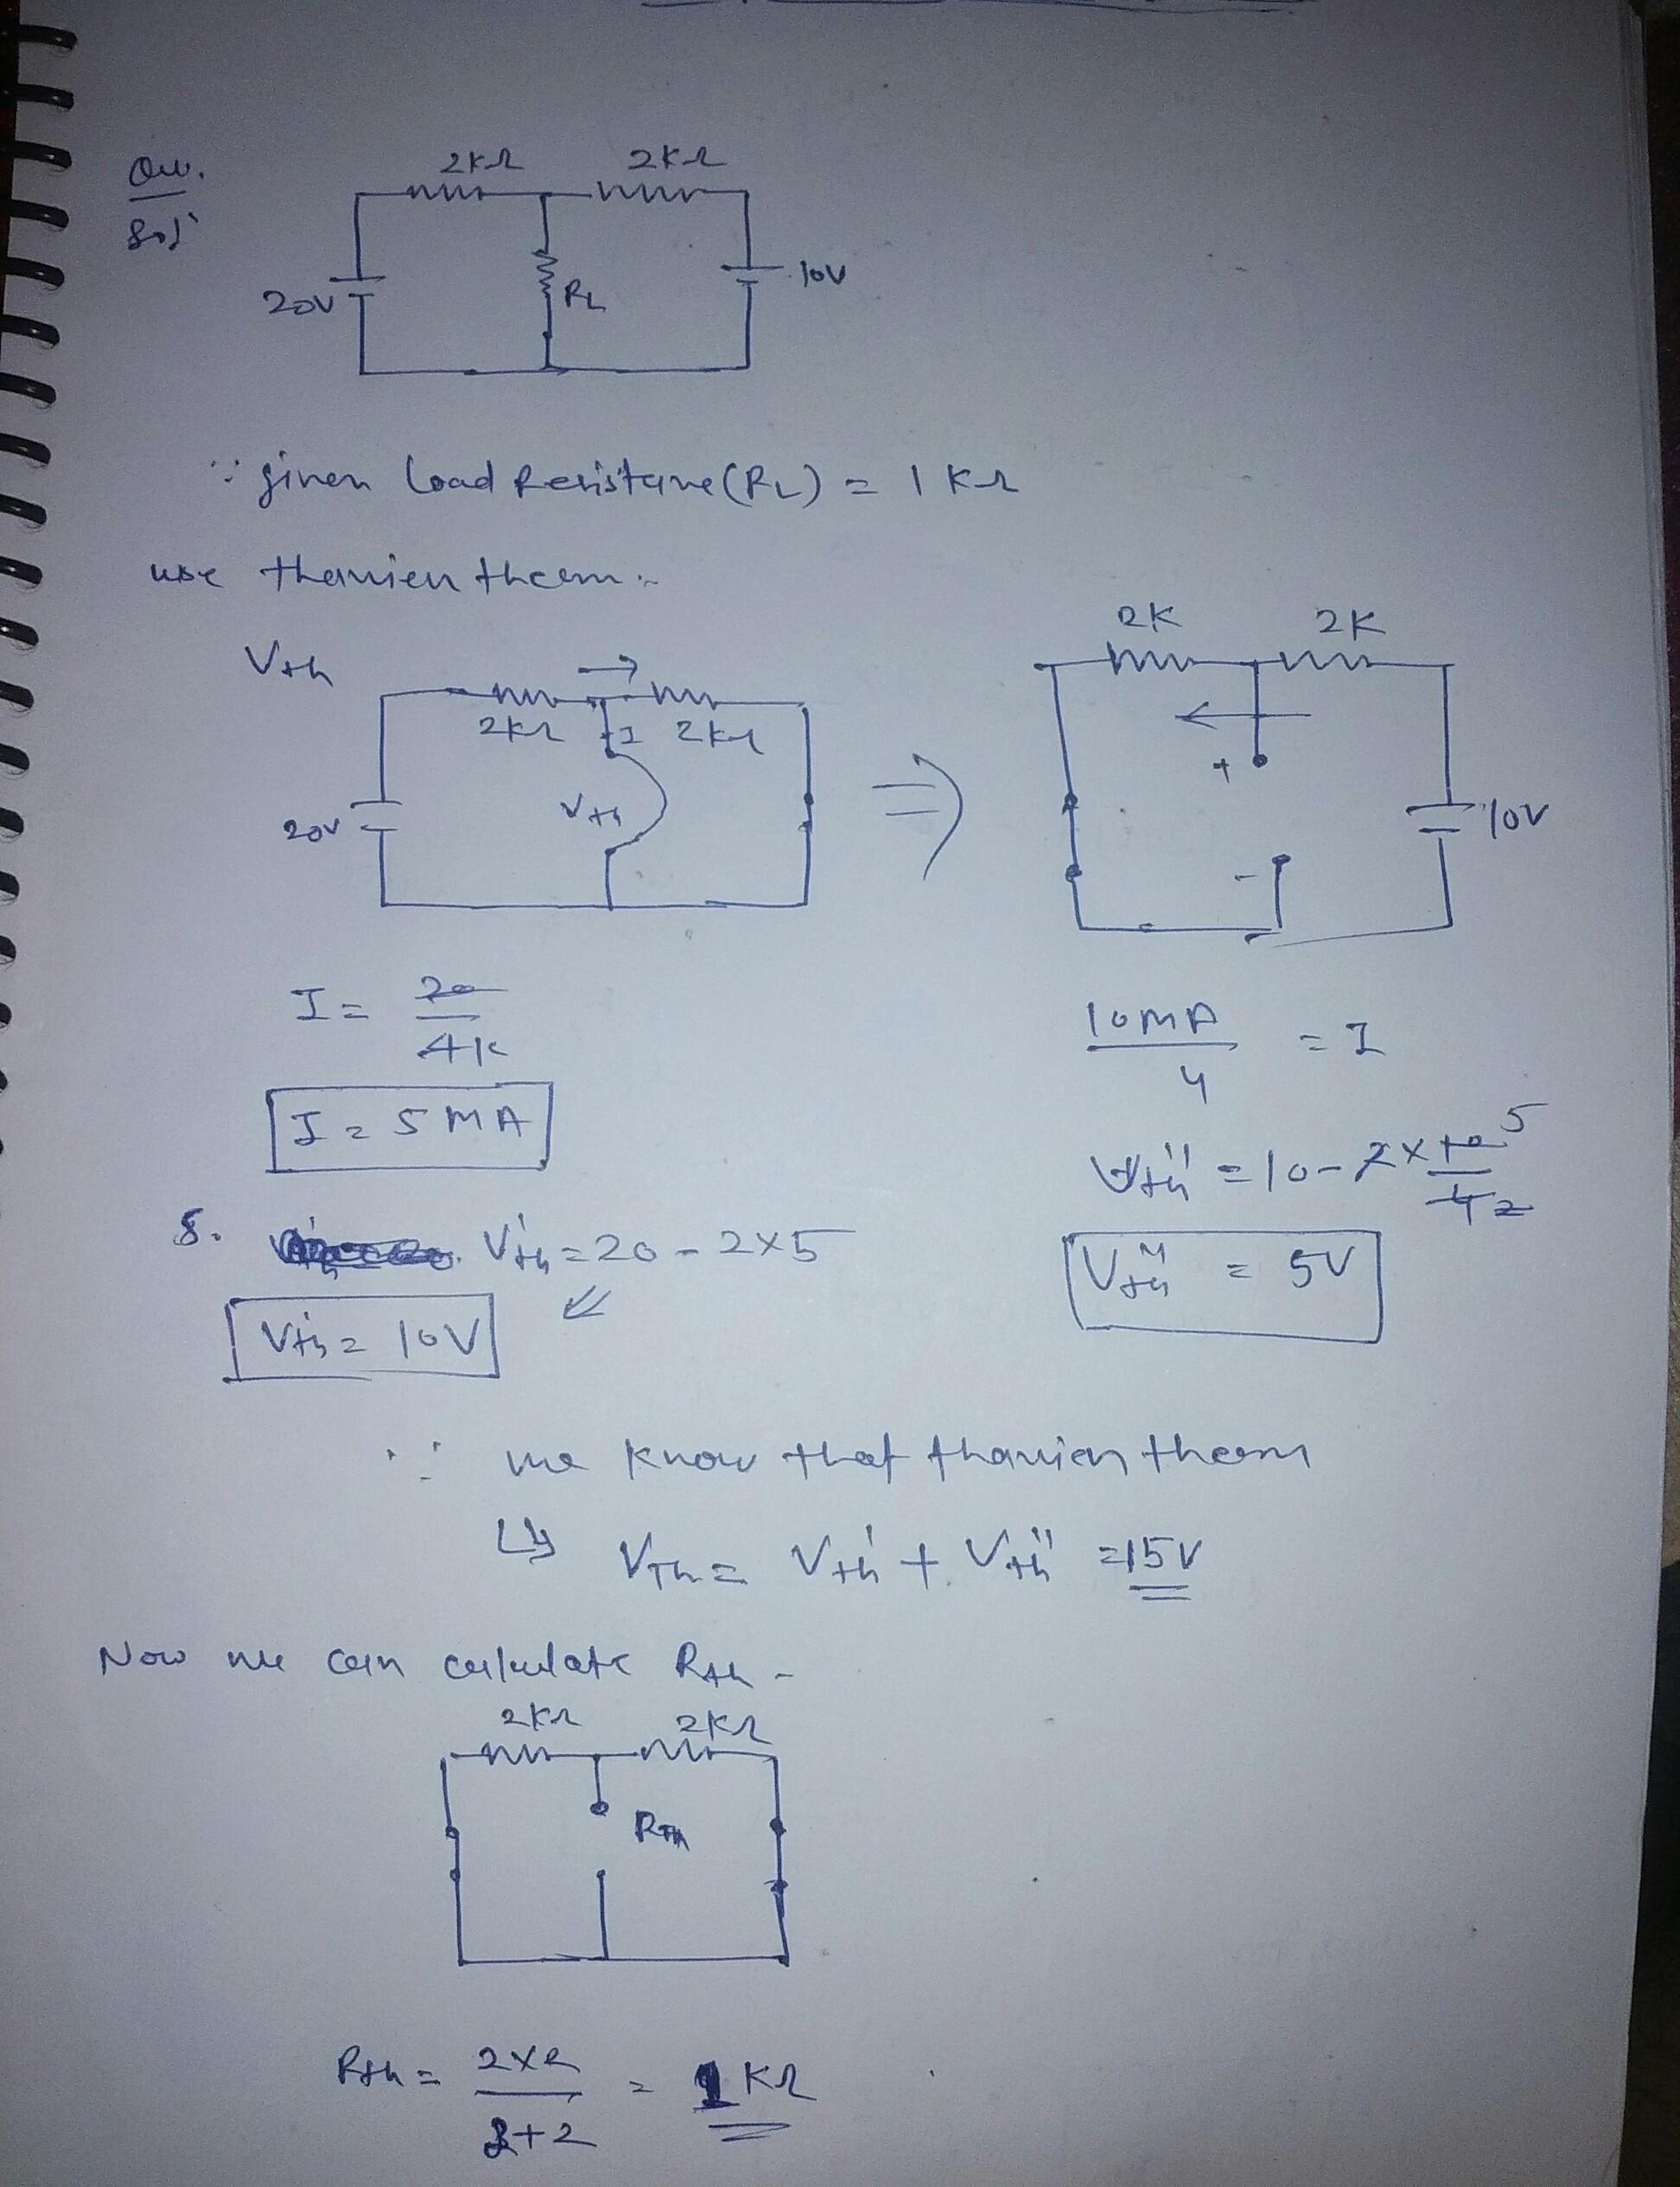 Que.
Sol
2KΩ 2KΩ
20V RL 10V
∵ given load Resistane (RL) = 1 KΩ
use thevnien theem:-
Vth
2K 2K
2KΩ I 2KΩ
20V Vth ⇒ + - 10V
I = 20/4K
10MA/4 = I
I = 5 MA
Vth'' = 10 - 2×10/4 5 2
8. Vth' = 20 - 2×5
Vth'' = 5V
Vth' = 10V
∵ we know that thevnien theem
↳ VTh = Vth' + Vth'' = 15V
Now we can calculate Rth -
2KΩ 2KΩ
RTh
Rth = 2×2/2+2 = 1 KΩ